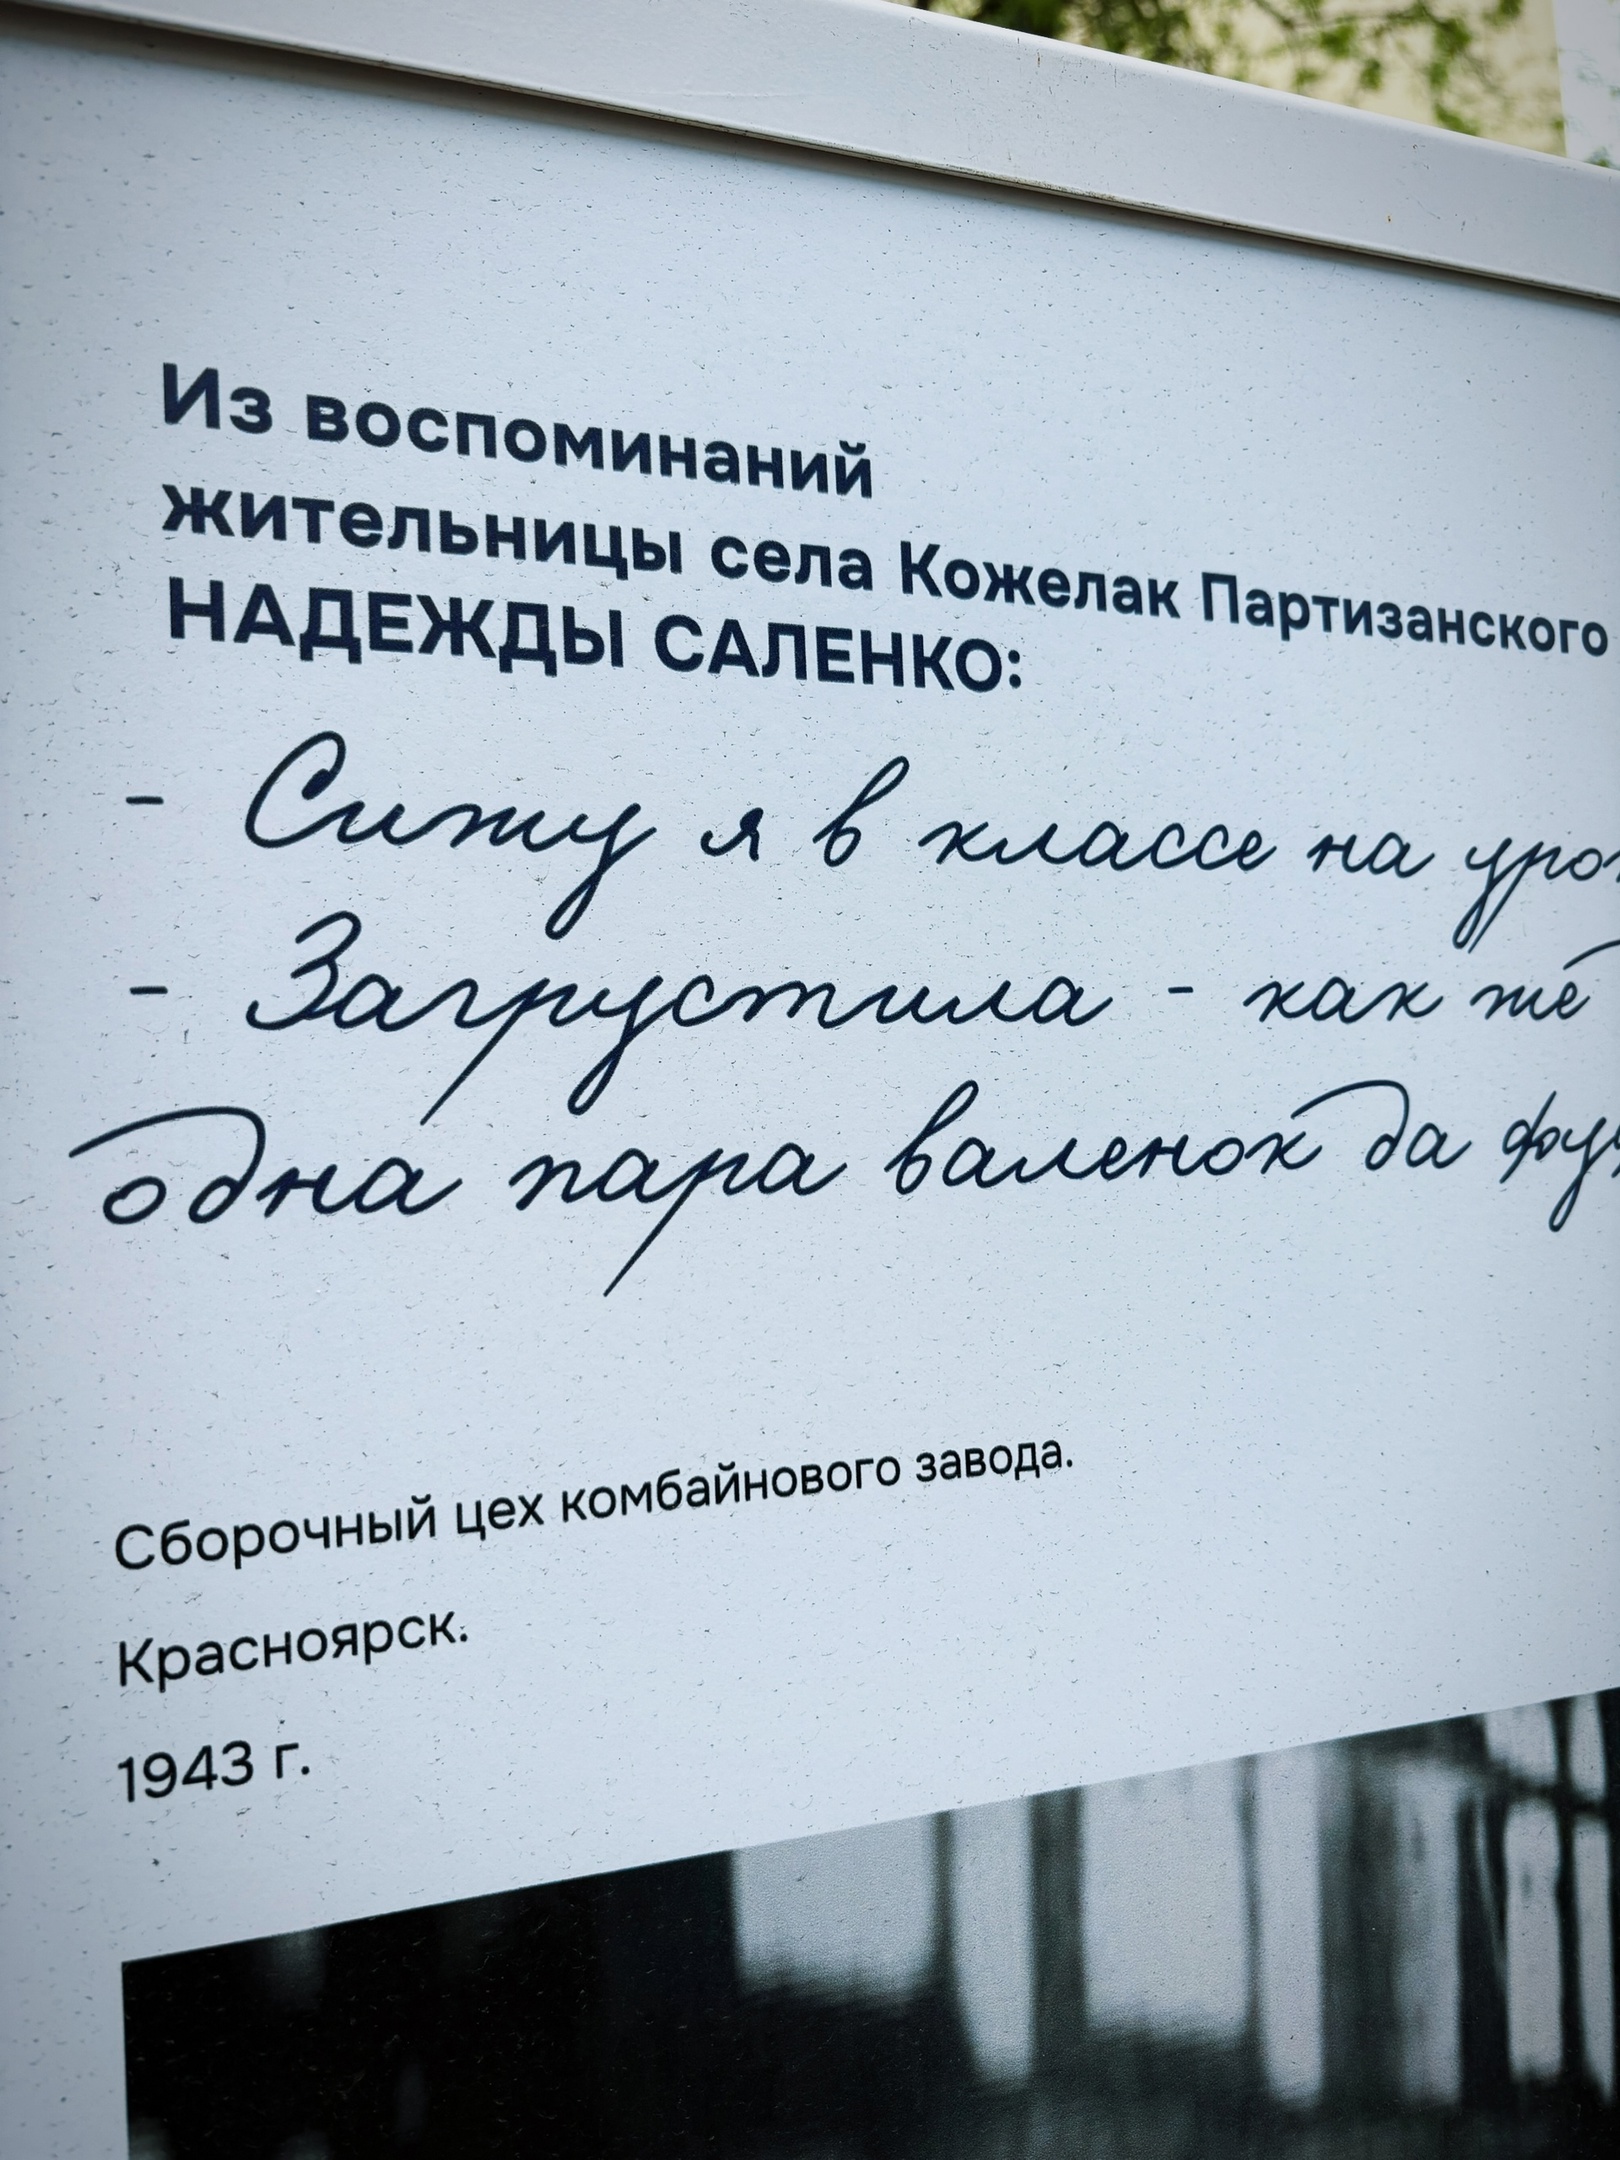 Из воспоминаний
жительницы села Кожелак Партизанского
НАДЕЖДЫ САЛЕНКО:
- Сижу я в классе на уро
- Загрустила - как же
одна пара валенок да фу
Сборочный цех комбайнового завода.
Красноярск.
1943 г.